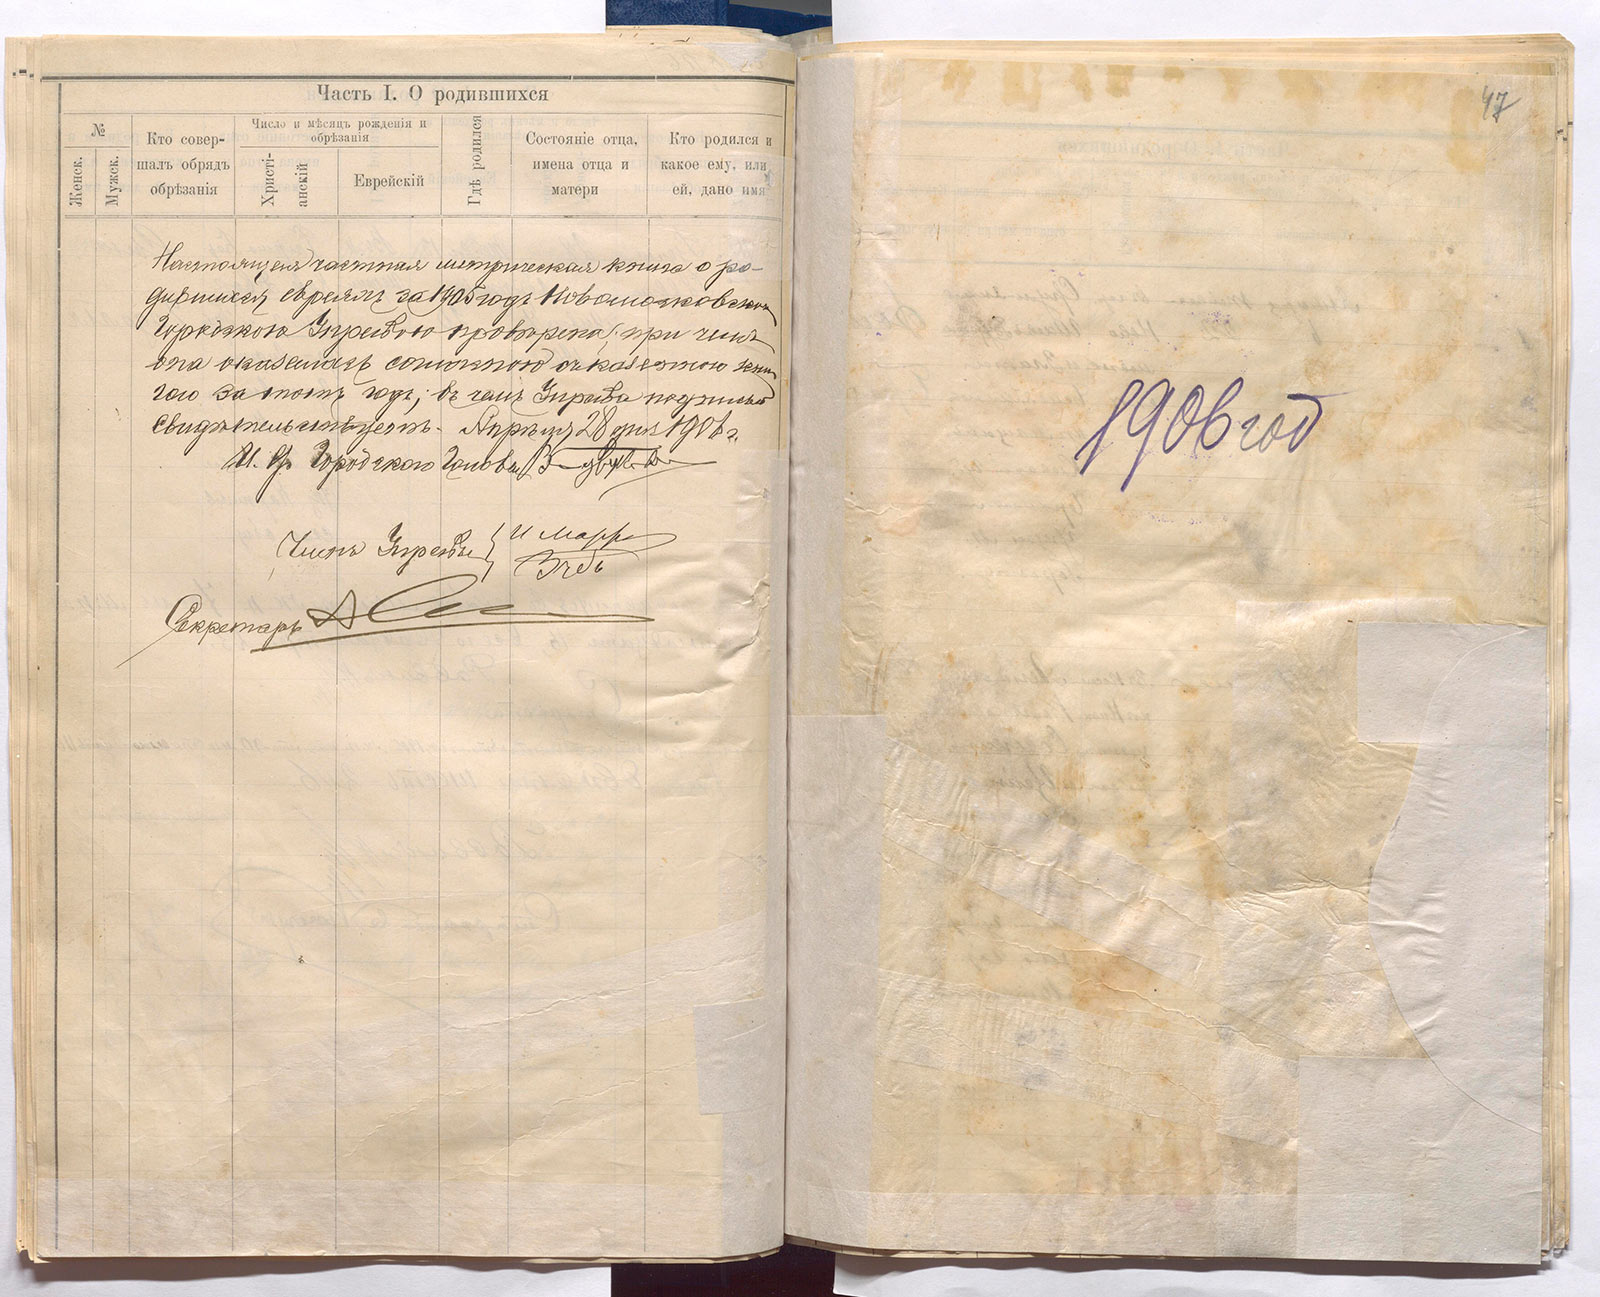 Часть I. О родившихся
№
Женск.
Мужск.
Кто совер-
шалъ обрядъ
обрѣзанія
Число и мѣсяцъ рожденія и
обрѣзанія
Христі-
анскій
Еврейскій
Гдѣ родился
Состояніе отца,
имена отца и
матери
Кто родился и
какое ему, или
ей, дано имя
Настоящая частная метрическая книга о ро-
дившихся евреямъ за 1905 годъ Новомосковскою
Городскою Управою проверена, при чемъ
она оказалась сходною съ казенною кни
гою за тотъ годъ; въ чемъ Управа подписью
свидѣтельствуетъ. Апрѣля 28 дня 1906 г.
И. д. Городского Головы
Членъ Управы
Секретарь
47
1906 год